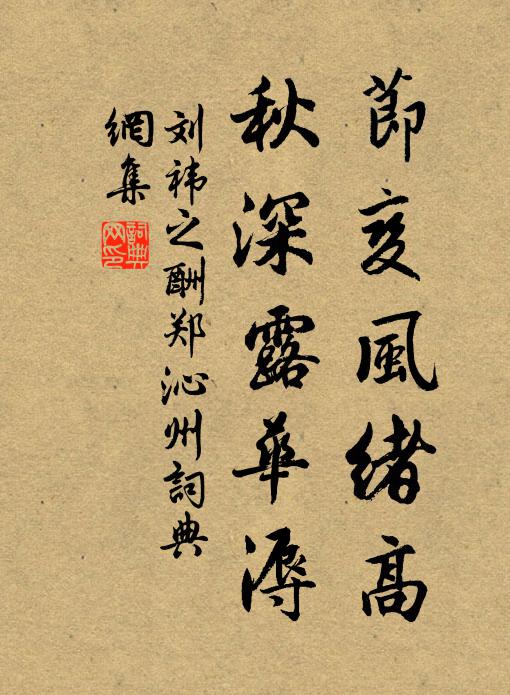 節変風緒高
秋深露華溽
刘祎之酬郑沁州詞典
網集
詞典
网印